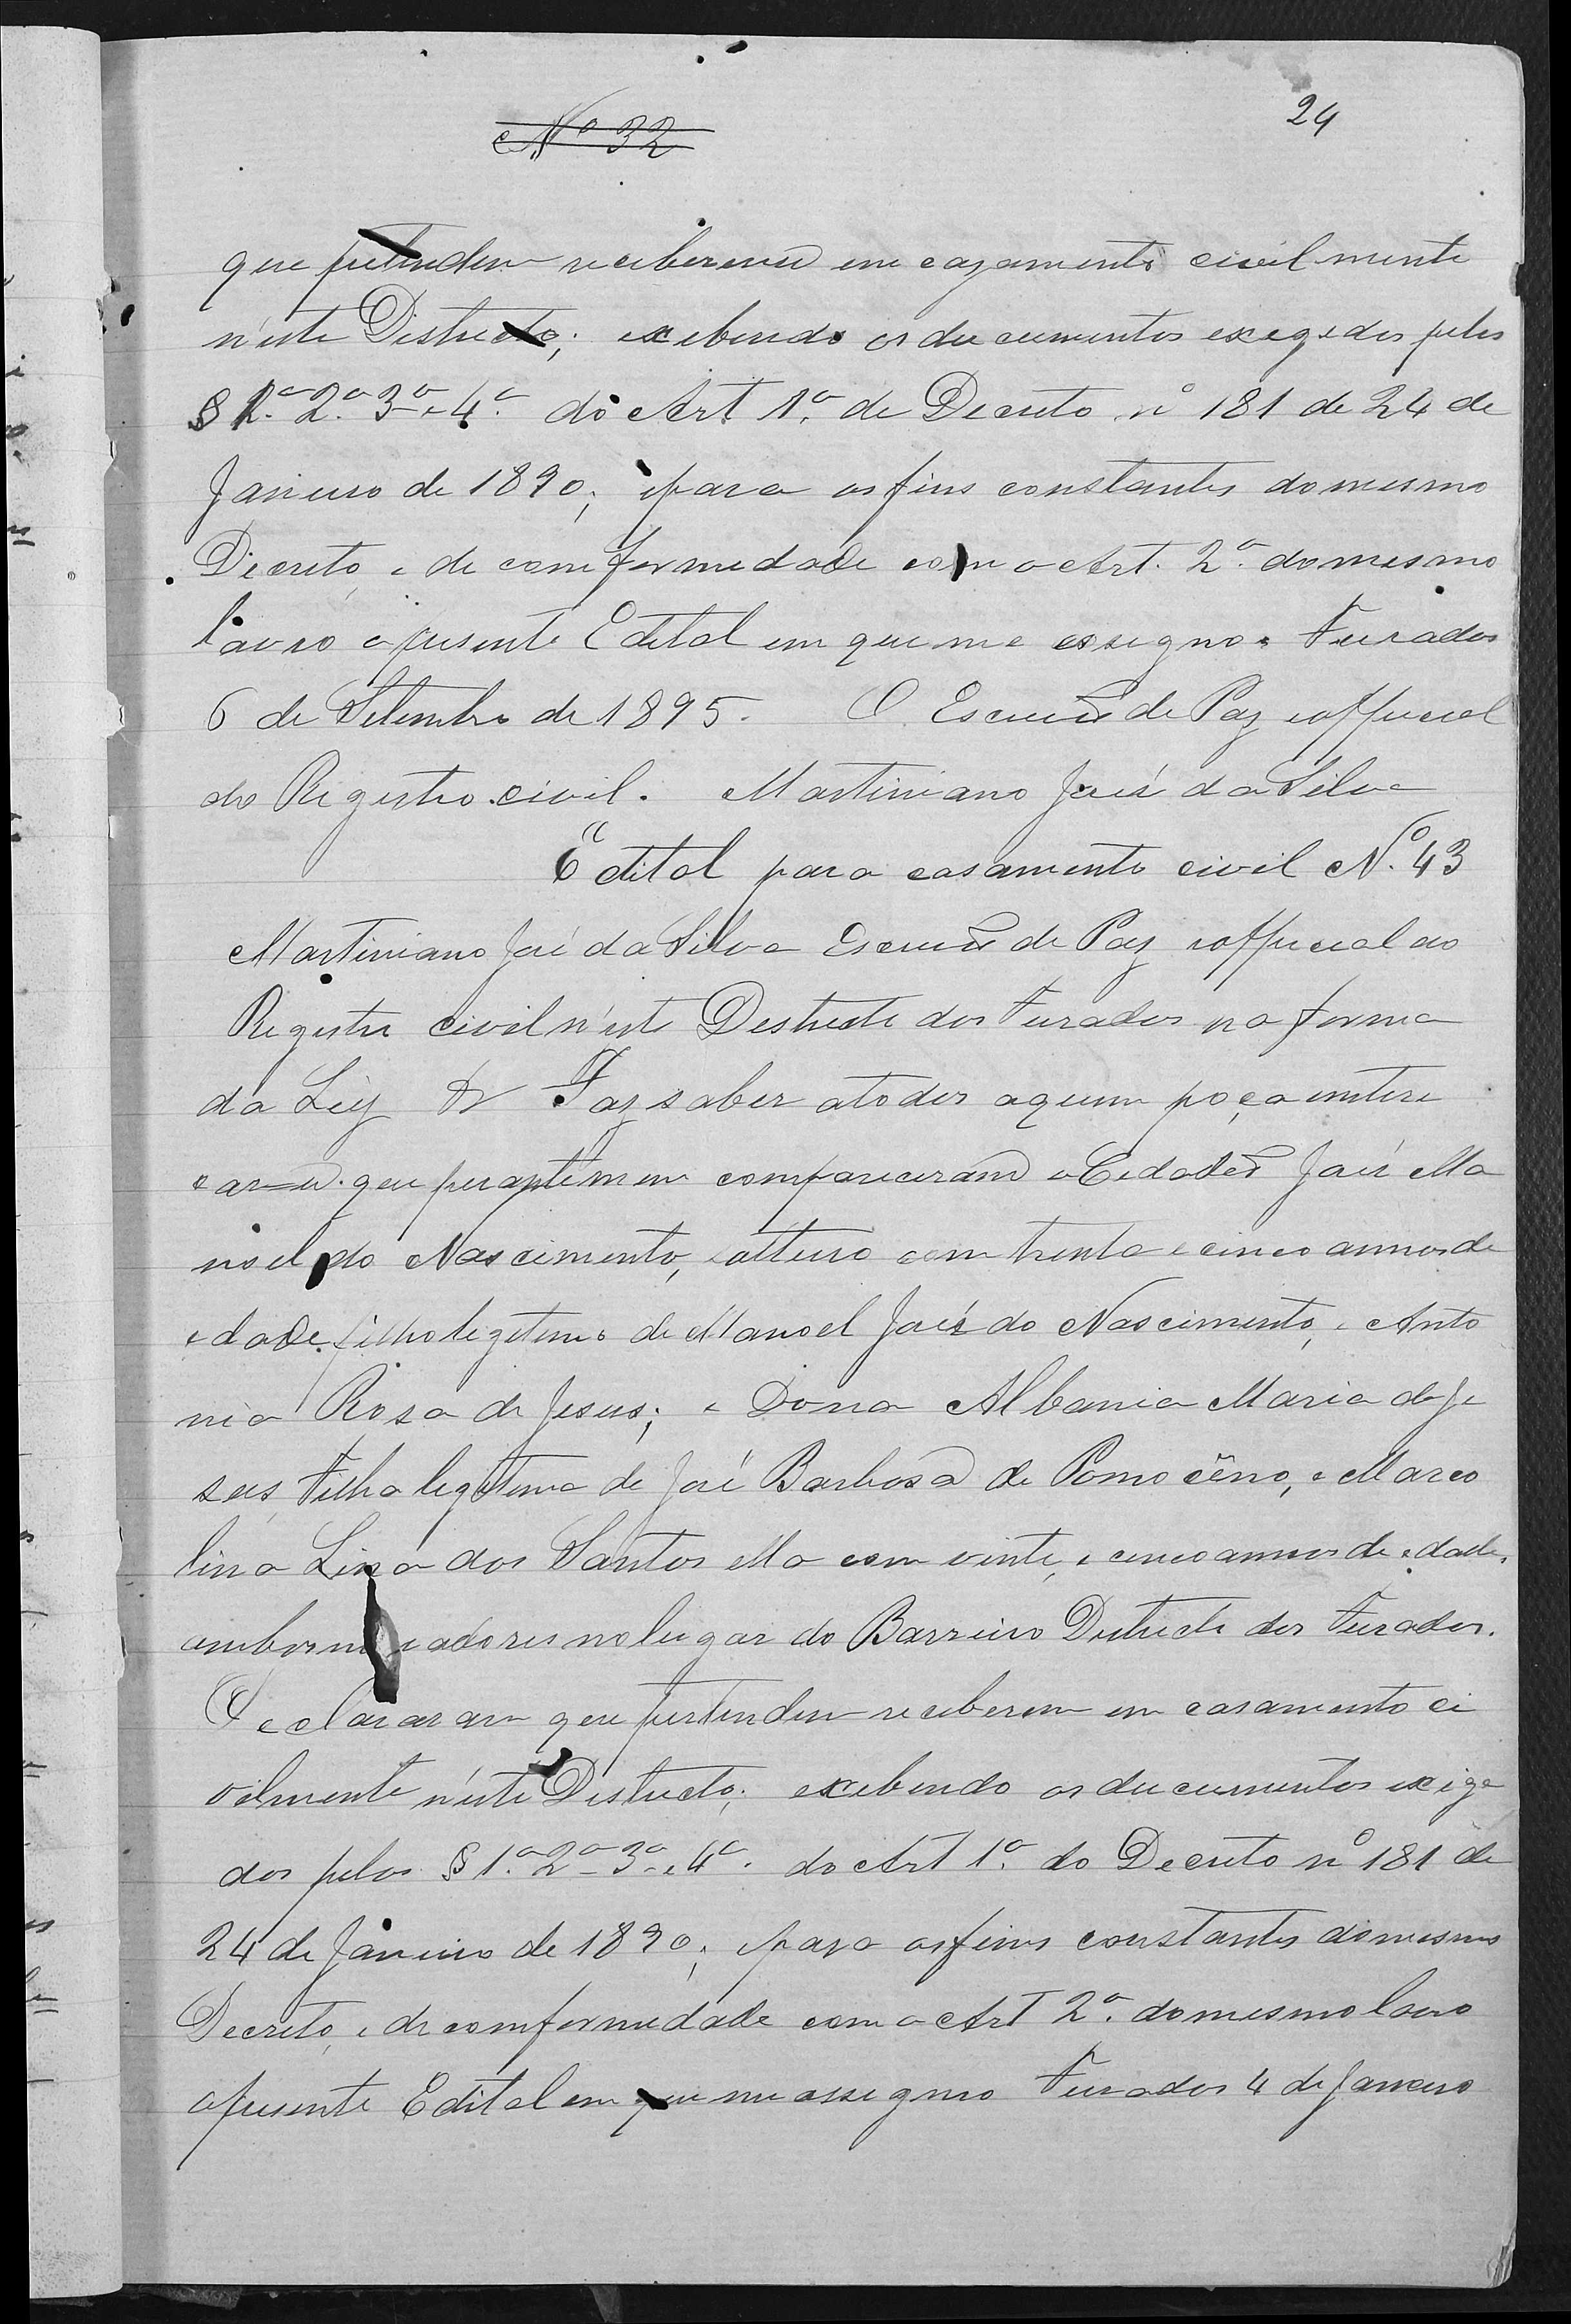 24
Nº 32
que pretendem receberem em cazamento civilmente
n'este Districto; exebindo os ducumentos exegedos pelos
§ 1º 2º 3º e 4º do Art 1º de Decreto nº 181 de 24 de
Janeiro de 1890; epara os fins constantes do mesmo
Decreto, e de comformedade com o Art. 2º do mesmo
lavro o presente Edital em que me assegno. Furados
6 de Setembro de 1895. O Escrivão de Paz eofficial
do Registro civil. Martiniano José da Silva
Edital para casamento civil Nº 43
Martiniano José da Silva Escrivão de Paz eofficial do
Registro civil n'este Destricto dos Furados na forma
da Ley &ª Faz saber a todos aquem poça intere
çar que perante mim compareceram o Cedadão José Ma
noel do Nascimento, solteiro com trenta e cinco annos de
edade. filho legetimo de Manoel José do Nascimento, e Anto
nia Roza de Jesus; e Dona Albania Maria de Je
sus, Filha legitima de José Barbosa de Pomocêno, e Marco
lina Lina dos Santos ella com vinte, e cinco annos de edade.
ambos moradores no lugar do Barreiro Destricto dos Furados.
Declararam que pertendem receberem em casamento ci
vilmente n'este Destricto; exebindo os ducumentos exige
dos pelos § 1º 2º 3º e 4º do Art 1º do Decreto nº 181 de
24 de Janeiro de 1890; epara os fins constantes do mesmo
Decreto, e de comformedade com o Art 2º do mesmo lavro
o presente Edital em que me assegno Furados 4 de Janeiro